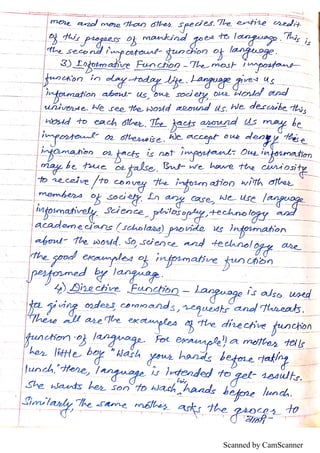 more and more than other species. The entire credit
of this progress of mankind goes to language. This is
the second important function of language.
3) Informative Function - The most important
function in day-today life. Language gives us
information about us, our society, our world and
universe. We see the world around us. We describe this
world to each other. The facts around us may be
important or otherwise. We accept our deny these
information or facts is not important. Our information
may be true or false. But we have the curiosity
to receive / to convey the information with other
members of society. In any case, we use language
informatively science, philosophy, technology and
academecians (scholars) provide us information
about the world. So, science and technology are
the good examples of informative function
performed by language.
4) Directive Function - Language is also used
for giving orders commands, requests and threats.
There all are the examples of the directive function
function of language. For example 1) a mother tells
her little boy "Wash your hands before taking
lunch." Here, language is intended to get results.
She wants her son to wash his hands before lunch.
Similarly, the same mother asks the grocer to
Scanned by CamScanner